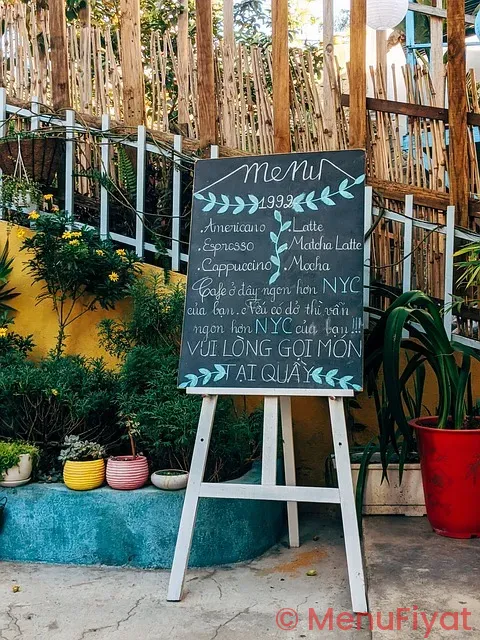 menu
1992
.Americano .Latte
.Espresso .Matcha Latte
.Cappuccino .Mocha
Cafe ở đây ngon hơn NYC
của bạn. Nếu có dở thì vẫn
ngon hơn NYC của bạn!!!
VUI LÒNG GỌI MÓN
TẠI QUẦY
© MenuFiyat